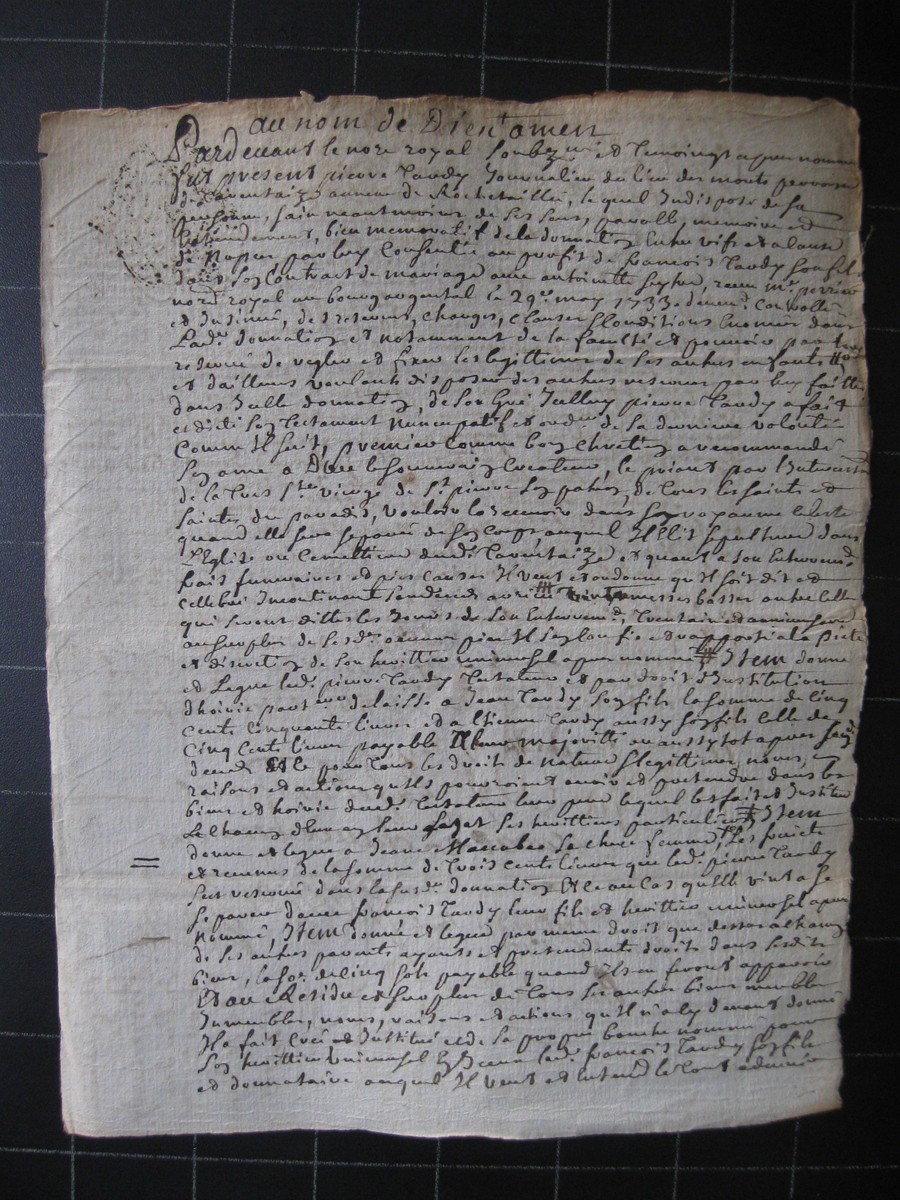 au nom de Dieu amen
Pardevant le nore royal soubzne et temoings apres nommes
fut present pierre tardy Journalier du lieu des monts perroisse
de tarentaize annexe de Rochetaillée, lequel Indispose de sa
personne, sain neantmoins de ses sens, parolle, memoire et
entendement, bien memoratif de la donnation Entre vifs et a cause
de nopces par luy Consentie au proffit de francois tardy son fils
dans son Contract de mariage avec antoinette seytre, receu me perrier
nore royal au bourgargental le 29e may 1733 duem.t Controllé
et Insinué, des reserves, charges, clauses & Conditions Enoncées dans
lad. donnation et notamment de la faculté et pouvoir par luy
reservé de regler et fixer les legittimes de ses autres enfants
et d'ailleurs voulant disposer des autres reserves par luy faittes
dans Icelle donnation, de son gré Icelluy pierre tardy a fait
et dicté son testament nuncupatif et ordce de sa derniere volonté
Comme s'Ensuit, premier comme bon chretien a recommandé
son ame a Dieu le souverain Createur, le priant par l'Intercession
de la tres Ste vierge de St pierre son patron, de tous les saints et
saintes du paradis, vouloir la recevoir dans son royaume celeste
quand elle sera separée de son corps, auquel Il Elit sepulture dans
l'Eglise ou Cemettiere dud. tarentaize et quant a son Enterrement
frais funeraires et pies causes Il veut et ordonne qu'Il soit dit et
cellebré Incontinant son deceds messes basses outre celles
qui seront dittes les Jours de son Enterremt, trentain et anniversaire
au surplus de sesd. oeuvres pies Il s'en confie et rapporte a la pieté
et discretion de son heritier universel apres nommé Item donne
et legue led. pierre tardy testateur et par droit d'Institution
d'hoirie delaisse a Jean tardy son fils la somme de cinq
cent cinquante livres et a Etienne tardy aussy son fils celle de
Cinq cent livres payable a leur majorité ou aussytot apres son
deceds Et ce pour tous les droits de nature & legittime, noms,
raisons et actions qu'Ils pourroient avoir et pretendre dans les
biens et hoirie dud. testateur leur pere lequel les fait et Institue
et chacun d'eux en leur legat ses heritiers particuliers Item
donne et legue a Jeanne sa chere femme, les fruits
et revenus de la somme de trois cents livres que led. pierre tardy
s'est reservé dans la susd. donnation Et ce au cas qu'elle vint a se
separer davec francois tardy leur fils et heritier universel apres
nommé, Item donne et legue par meme droit que dessus a chacun
de ses autres parents ayants et pretendants droits dans sesdits
biens, la so: de cinq sols payable quand Ils en feront apparoir
Et au Residu et surplus de tous ses autres biens meubles
Immeubles, noms, raisons et actions qu'Il n'a cy devant donné
Il a fait créé et Institué et de sa propre bouche nommé pour
son heritier universel led. francois tardy son fils
et donnataire auquel Il veut et entend le tout